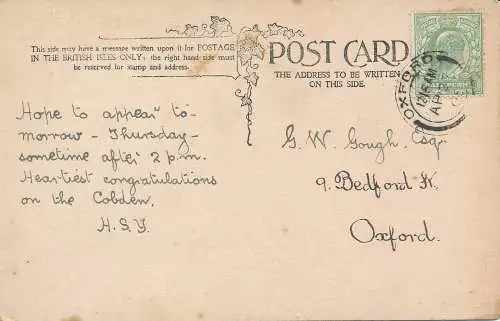 This side may have a message written upon it for POSTAGE
IN THE BRITISH ISLES ONLY: the right hand side must
be reserved for stamp and address.
POST CARD
THE ADDRESS TO BE WRITTEN
ON THIS SIDE.
OXFORD
AP
Hope to appear to-
morrow - Thursday -
sometime after 2 p.m.
Heartiest congratulations
on the Cobden.
H.S.Y.
G. W. Gough. Esq.
9. Bedford St.
Oxford.